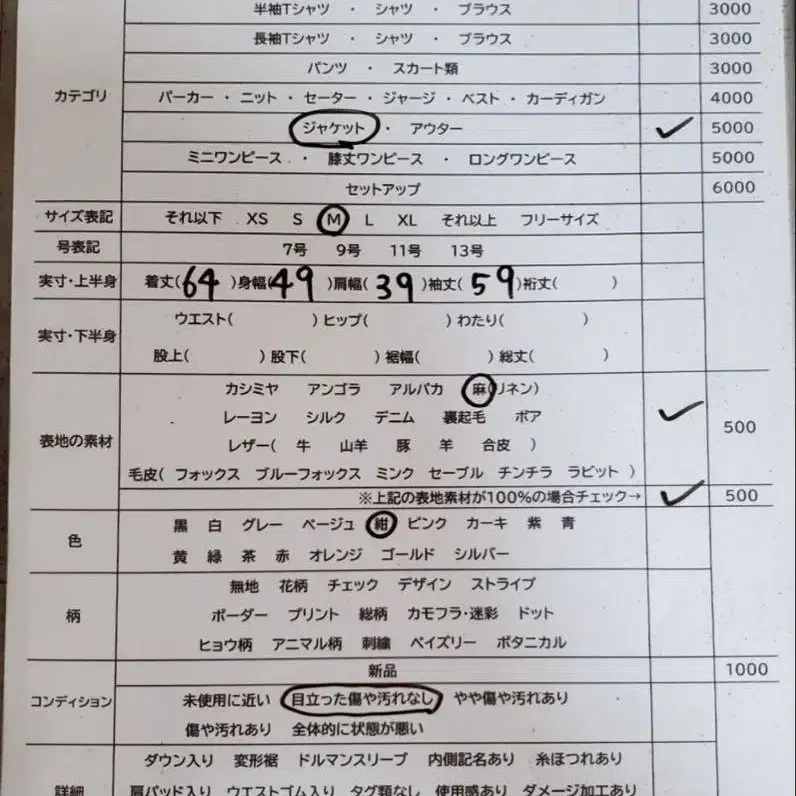 半袖Tシャツ ・ シャツ ・ ブラウス 3000
長袖Tシャツ ・ シャツ ・ ブラウス 3000
パンツ ・ スカート類 3000
カテゴリ パーカー ・ ニット ・ セーター ・ ジャージ ・ ベスト ・ カーディガン 4000
ジャケット ・ アウター ✓ 5000
ミニワンピース ・ 膝丈ワンピース ・ ロングワンピース 5000
セットアップ 6000
サイズ表記 それ以下 XS S M L XL それ以上 フリーサイズ
号表記 7号 9号 11号 13号
実寸・上半身 着丈(64)身幅(49)肩幅(39)袖丈(59)裄丈( )
実寸・下半身 ウエスト( )ヒップ( )わたり( )
股上( )股下( )裾幅( )総丈( )
表地の素材 カシミヤ アンゴラ アルパカ 麻(リネン) ✓ 500
レーヨン シルク デニム 裏起毛 ボア
レザー( 牛 山羊 豚 羊 合皮 )
毛皮( フォックス ブルーフォックス ミンク セーブル チンチラ ラビット )
※上記の表地素材が100%の場合チェック→ ✓ 500
色 黒 白 グレー ベージュ 紺 ピンク カーキ 紫 青
黄 緑 茶 赤 オレンジ ゴールド シルバー
柄 無地 花柄 チェック デザイン ストライプ
ボーダー プリント 総柄 カモフラ・迷彩 ドット
ヒョウ柄 アニマル柄 刺繍 ペイズリー ボタニカル
コンディション 新品 1000
未使用に近い 目立った傷や汚れなし やや傷や汚れあり
傷や汚れあり 全体的に状態が悪い
詳細 ダウン入り 変形裾 ドルマンスリーブ 内側記名あり 糸ほつれあり
肩パッド入り ウエストゴム入り タグ類なし 使用感あり ダメージ加工あり